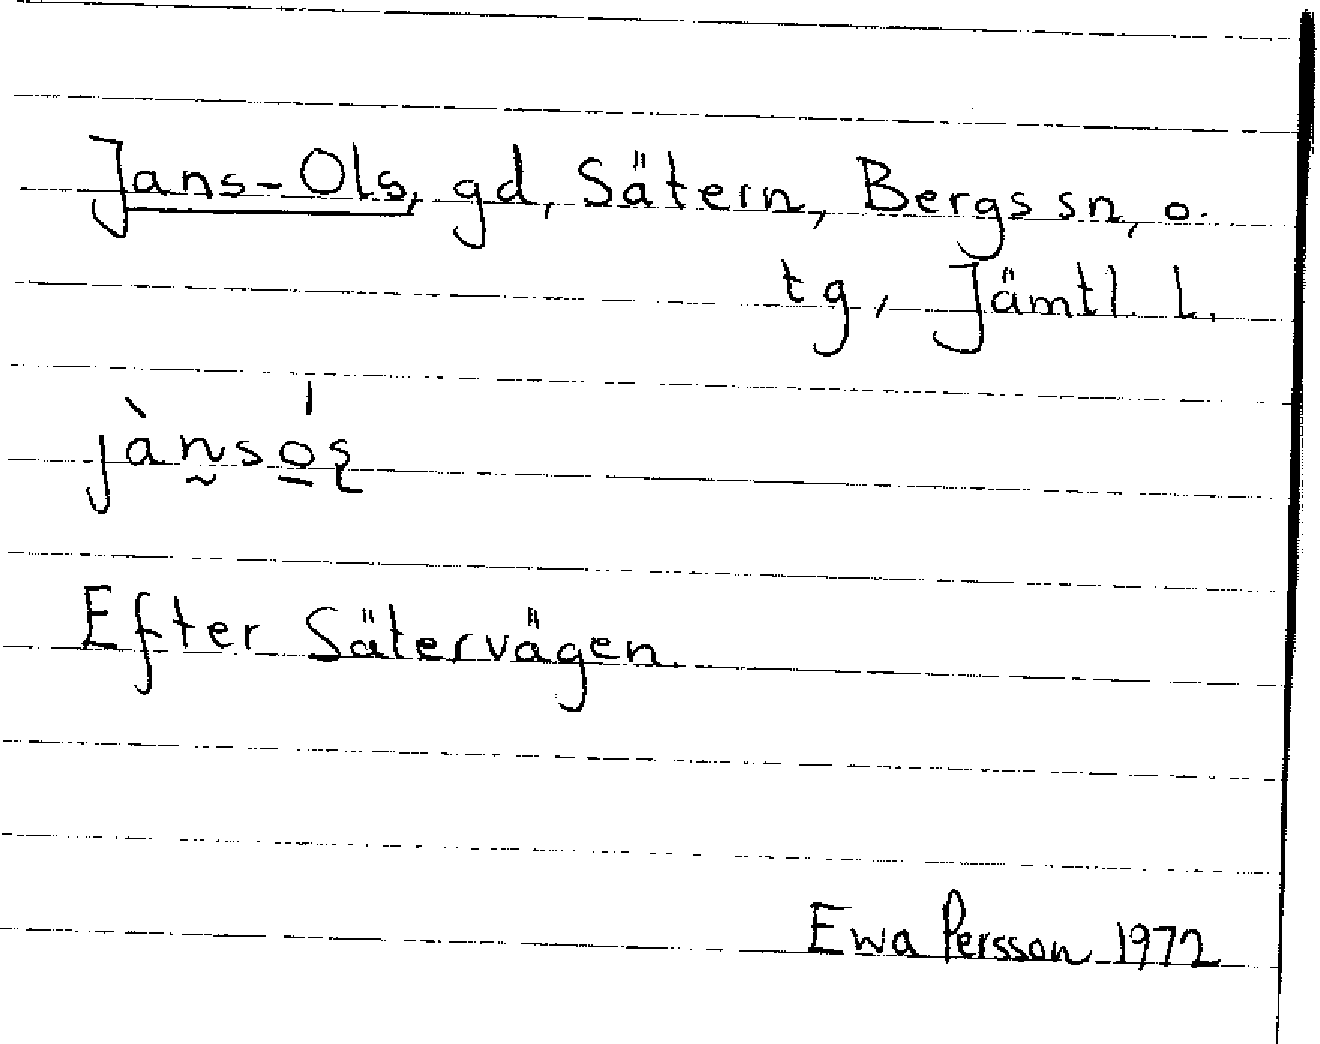 Jans-Ols, gd, Sätern, Bergs sn, o.
tg, Jämtl. l.
jàn̰só̲ʂ
Efter Sätervägen.
Ewa Persson 1972